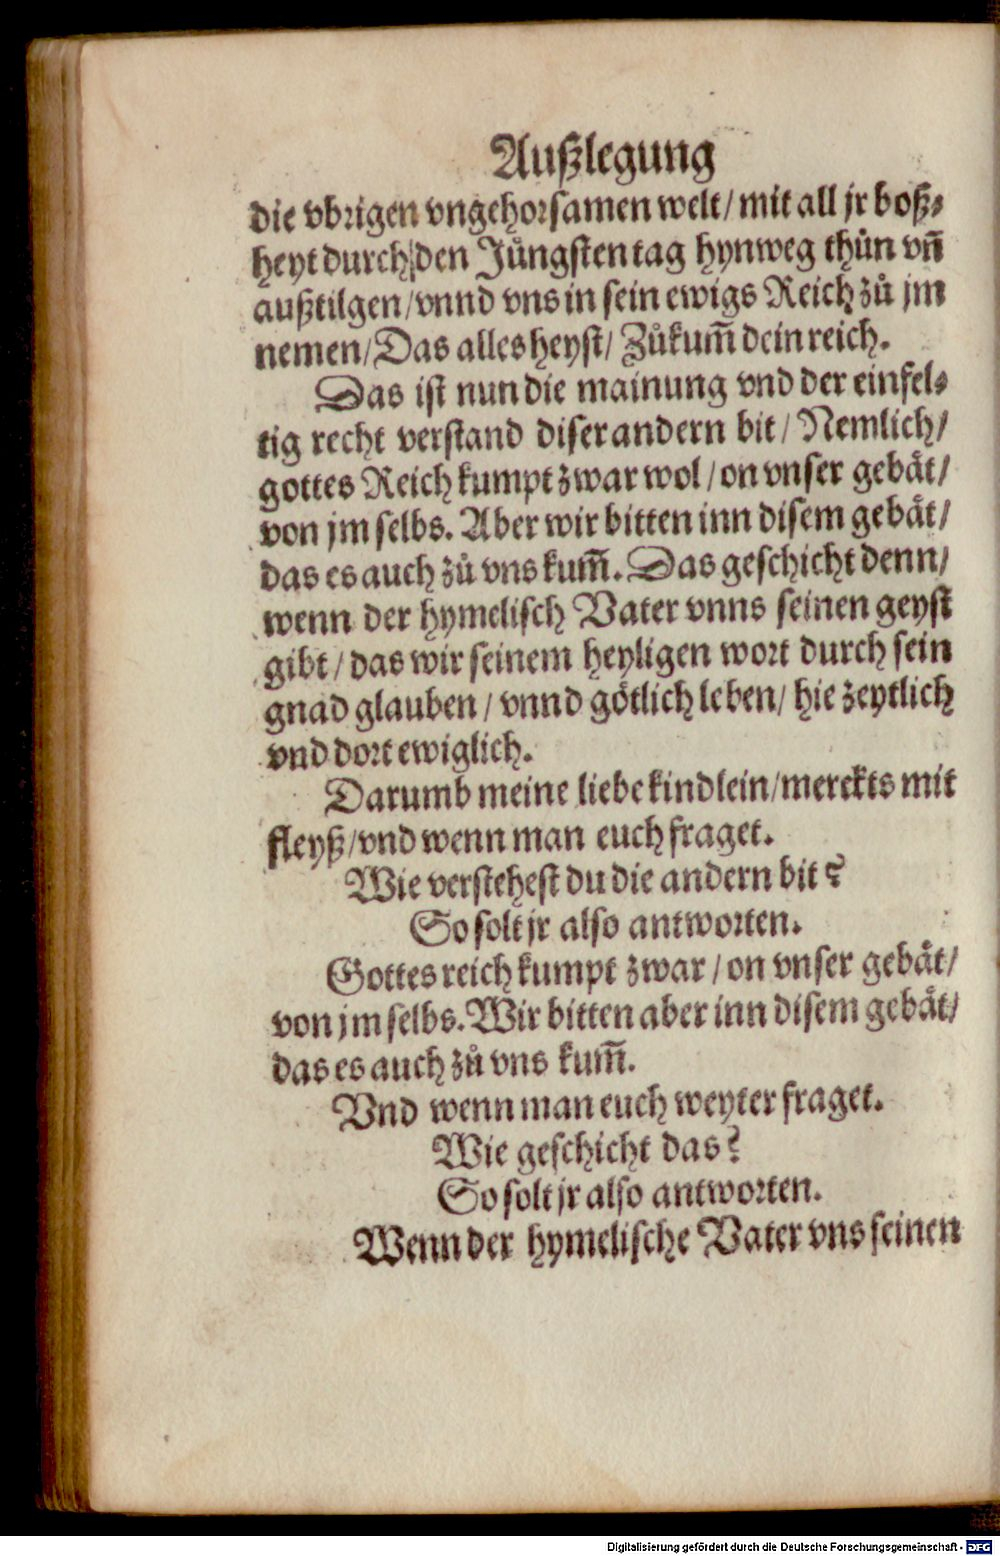 Außlegung
die vbrigen vngehorsamen welt/ mit all jr boß⸗
heyt durch den Jüngsten tag hynweg thůn vñ
außtilgen/ vnnd vns in sein ewigs Reich zů jm
nemen/ Das alles heyst/ Zůkum̄ dein reich.
Das ist nun die mainung vnd der einfel⸗
tig recht verstand diser andern bit/ Nemlich/
gottes Reich kumpt zwar wol/ on vnser gebät/
von jm selbs. Aber wir bitten inn disem gebät/
das es auch zů vns kum̄. Das geschicht denn/
wenn der hymelisch Vater vnns seinen geyst
gibt/ das wir seinem heyligen wort durch sein
gnad glauben/ vnnd götlich leben/ hie zeytlich
vnd dort ewiglich.
Darumb meine liebe kindlein/ merckts mit
fleyß/ vnd wenn man euch fraget.
Wie verstehest du die andern bit?
So solt jr also antworten.
Gottes reich kumpt zwar/ on vnser gebät/
von jm selbs. Wir bitten aber inn disem gebät/
das es auch zů vns kum̄.
Vnd wenn man euch weyter fraget.
Wie geschicht das?
So solt jr also antworten.
Wenn der hymelische Vater vns seinen
Digitalisierung gefördert durch die Deutsche Forschungsgemeinschaft - DFG